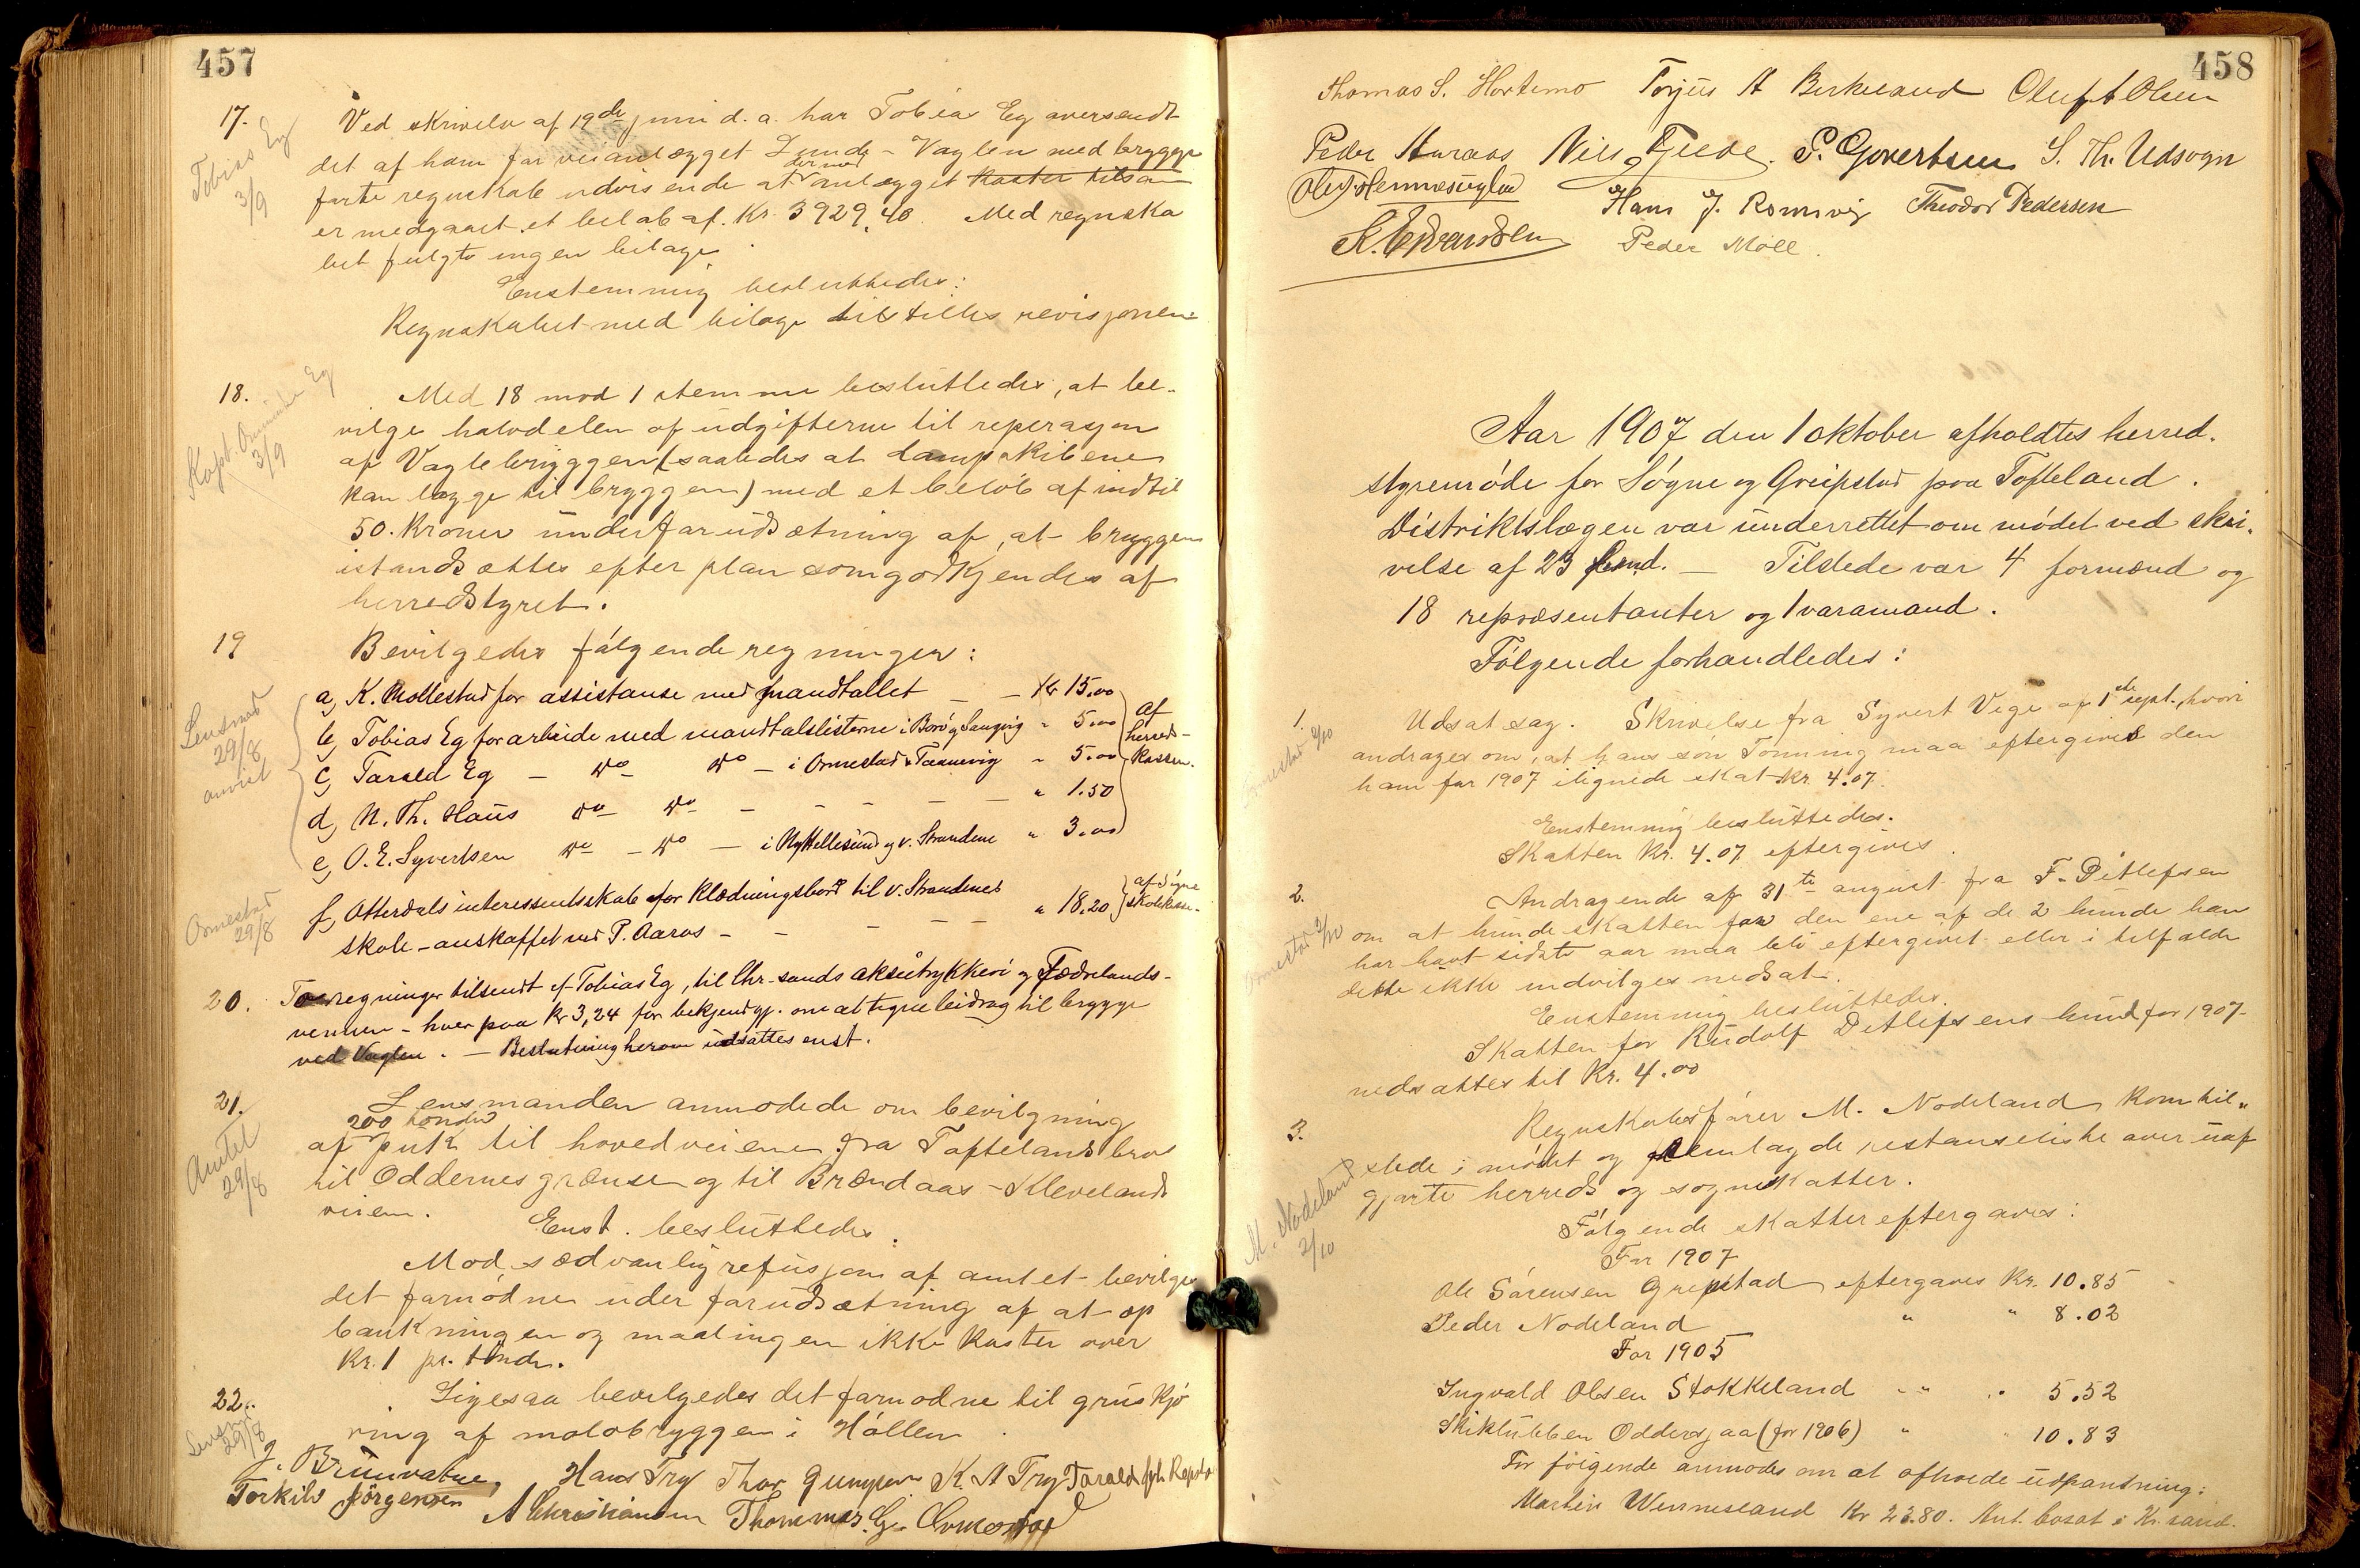 457
17.
Tobias Eg
3/9
Ved skrivelse af 19de juni d. a. har Tobias Eg oversendt
det af ham for veianlægget Lunde - Vaglen med brygge
førte regnskab udvisende at dermed anlægget koster tilsam
er medgaaet et beløb af Kr. 3929,40. Med regnska
bet fulgte ingen bilage.
Enstemmig besluttedes:
Regnskabet med bilage tilstilles revisjonen.
18.
Kapt. Omminde Eg
3/9
Med 18 mod 1 stemme besluttedes, at be-
vilge halvdelen af udgifterne til reperasjon
af Vaglebryggen (saaledes at dampskibene
kan lægge til bryggen) med et beløb af indtil
50. kroner under forudsætning af, at bryggen
istandsættes efter plan som godkjendes af
herredstyret.
19
Bevilgedes følgende regninger:
Lensmad
29/8
anvist
a, K. Mollestad for assistanse med mandtallet - - Kr 15.00
b, Tobias Eg for arbeide med mandtalslisterne i Borø og Langvig " 5.00
c, Tarald Eg - do do - i Ormestad & Tannevig " 5.00
d, N. Th. Haus do do - - - - - " 1.50
e, O. E. Syvertsen do - do - i Ny Hellesund og v. Strandene " 3.00
af herreds-
kassen.
Ormestad
29/8
f, Otterdals interessentskab for klædningsbord til v. Strandenes
skole - anskaffet ved P. Aaros - - - - " 18.20
af Søgne
skolekasse.
20.
To regninger tilsendt af Tobias Eg, til Chr-sands aksietrykkeri og Fædrelands-
vennen - hver paa Kr 3,24 for bekjendtgj. om at tegne beidrag til brygge
ved Vaglen. - Beslutning herom udsattes enst.
21.
Amtet
29/8
Lensmanden anmodede om bevilgning
200 tønder
af puk til hovedveiene fra Toftelands bro
til Oddernes grænse og til Brændaas - Klevelands
veien.
Enst. besluttedes:
Mod sædvanlig refusjon af amtet bevilges
det fornødne under forudsætning af at op
bankningen og maalingen ikke koster over
Kr. 1 pr. tønde.
22.
Lensm.
29/8
Ligesaa bevilgedes det fornødne til gruskjø
ring af molobryggen i Høllen.
J. Brunvatne, Hans Try Thor K. A Try Tarald
Torkild Jørgensen A Christiansen Thommas. G. Ormestad
458
Thomas S. Hortemo Torjus A Birkeland Oluf A Olsen
Peder Aaraas Niels Fjelde. P. Govertsen S. Th. Udsogn
Hans J. Romsvig Theodor Pedersen
Peder Moll.
Aar 1907 den 1 oktober afholdtes herred.
styremøde for Søgne og Greipstad paa Tofteland.
Distriktslægen var underrettet om mødet ved skri.
velse af 23 f.md. - Tilstede var 4 formænd og
18 repræsentanter og 1 varamand.
Følgende forhandledes:
1.
Ormestad 2/10
Udsat sag. Skrivelse fra Syvert Vige af 1ste sept., hvori
andrages om, at hans søn Tonning maa eftergives den
ham for 1907 ilignede skat Kr. 4.07.
Enstemmig besluttedes.
Skatten Kr. 4.07 eftergives.
2.
Ormestad 2/10
Andragende af 31te august fra F. Ditlefsen
om at hundeskatten for den ene af de 2 hunde han
har havt sidste aar maa bli eftergivet eller i tilfælde
dette ikke indvilges nedsat.
Enstemmig besluttedes.
Skatten for Rudolf Detlefsens hund for 1907
nedsattes til Kr. 4.00
3.
M. Nodeland
2/10
Regnskabsfører M. Nodeland kom til"
stede i mødet og fremlagde restanseliste over uaf
gjorte herreds og sogneskatter.
Følgende skatter eftergaves:
For 1907
Ole Sørensen Grepstad eftergaves Kr. 10.85
Peder Nodeland " " 8.02
For 1905
Ingvald Olsen Stokkeland " " 5.52
Skiklubben Oddersjaa (for 1906) " " 10.83
For følgende anmodes om at afholde udpantning:
Martin Wennesland Kr 23.80. Ant. bosat i Kr.sand.